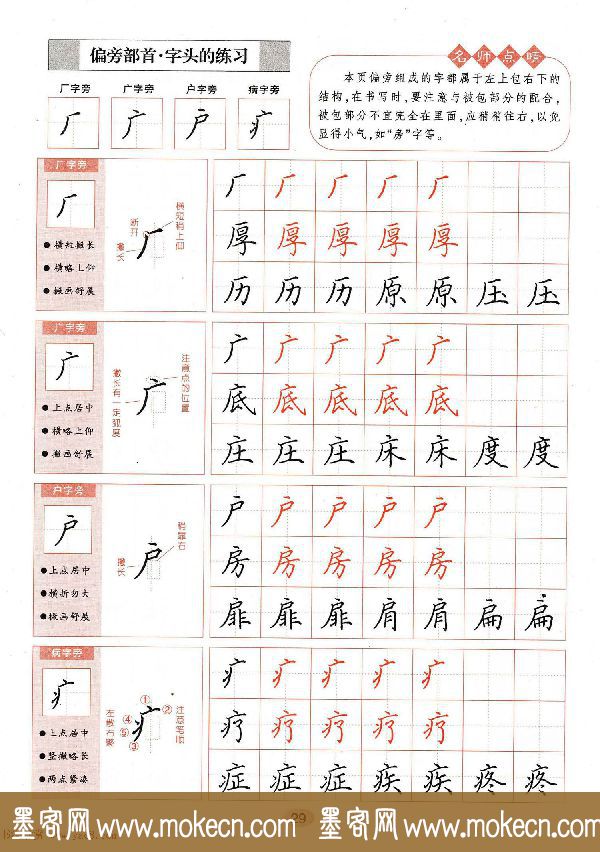 偏旁部首·字头的练习
名师点晴
厂字旁 广字旁 户字旁 病字旁
厂 广 户 疒
本页偏旁组成的字都属于左上包右下的
结构,在书写时,要注意与被包部分的配合,
被包部分不宜完全在里面,应稍稍往右,以免
显得小气,如“房”字等。
厂字旁
厂
●横短撇长
●横略上仰
●撇画舒展
横短稍上仰
断开
撇长
厂
厂 厂 厂 厂 厂
厚 厚 厚 厚 厚
历 历 历 原 原 压 压
广字旁
广
●上点居中
●横略上仰
●撇画舒展
注意点的位置
撇长有一定弧度
广
广 广 广 广 广
底 底 底 底 底
庄 庄 庄 床 床 度 度
户字旁
户
●上点居中
●横折勿大
●撇画舒展
稍靠右
撇长
户
户 户 户 户 户
房 房 房 房 房
扉 扉 扉 肩 肩 扁 扁
病字旁
疒
●上点居中
●竖撇略长
●两点紧凑
注意笔顺
左散右紧
① ② ③ ④ ⑤
疒
疒 疒 疒 疒 疒
疗 疗 疗 疗 疗
症 症 症 疾 疾 疼 疼
29
墨客网 www.mokecn.com 墨客网 www.mokecn.com